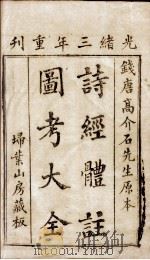 光緒三年重刊
錢唐高介石先生原本
詩經體註
圖考大全
埽葉山房藏板